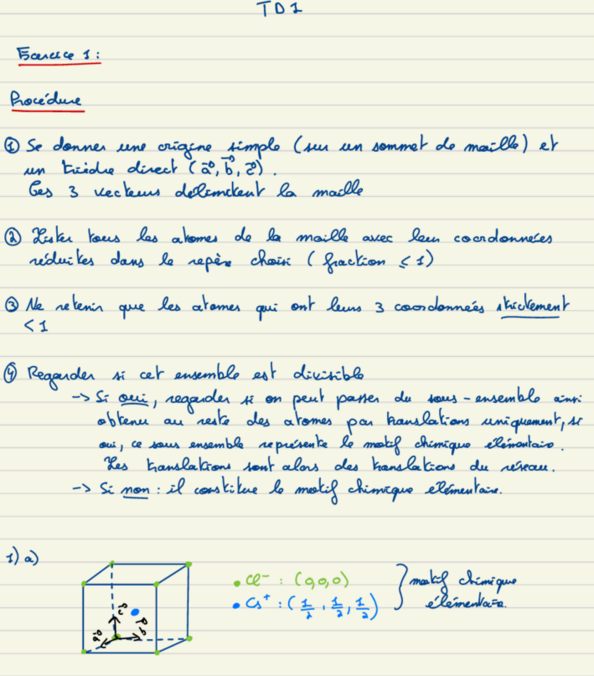 TD1
Exercice 1:
Procédure
① Se donner une origine simple (sur un sommet de maille) et
un trièdre direct (a⃗, b⃗, c⃗).
Ces 3 vecteurs délimitent la maille
② Lister tous les atomes de la maille avec leurs coordonnées
réduites dans le repère choisi (fraction ≤ 1)
③ Ne retenir que les atomes qui ont leurs 3 coordonnées strictement
< 1
④ Regarder si cet ensemble est divisible
-> Si oui, regarder si on peut passer du sous-ensemble ainsi
obtenu au reste des atomes par translations uniquement, si
oui, ce sous ensemble représente le motif chimique élémentaire.
Les translations sont alors des translations du réseau.
-> Si non : il constitue le motif chimique élémentaire.
1) a)
• Cl⁻ : (0,0,0) } motif chimique
• Cs⁺ : (1/2, 1/2, 1/2) élémentaire.
a⃗ b⃗ c⃗